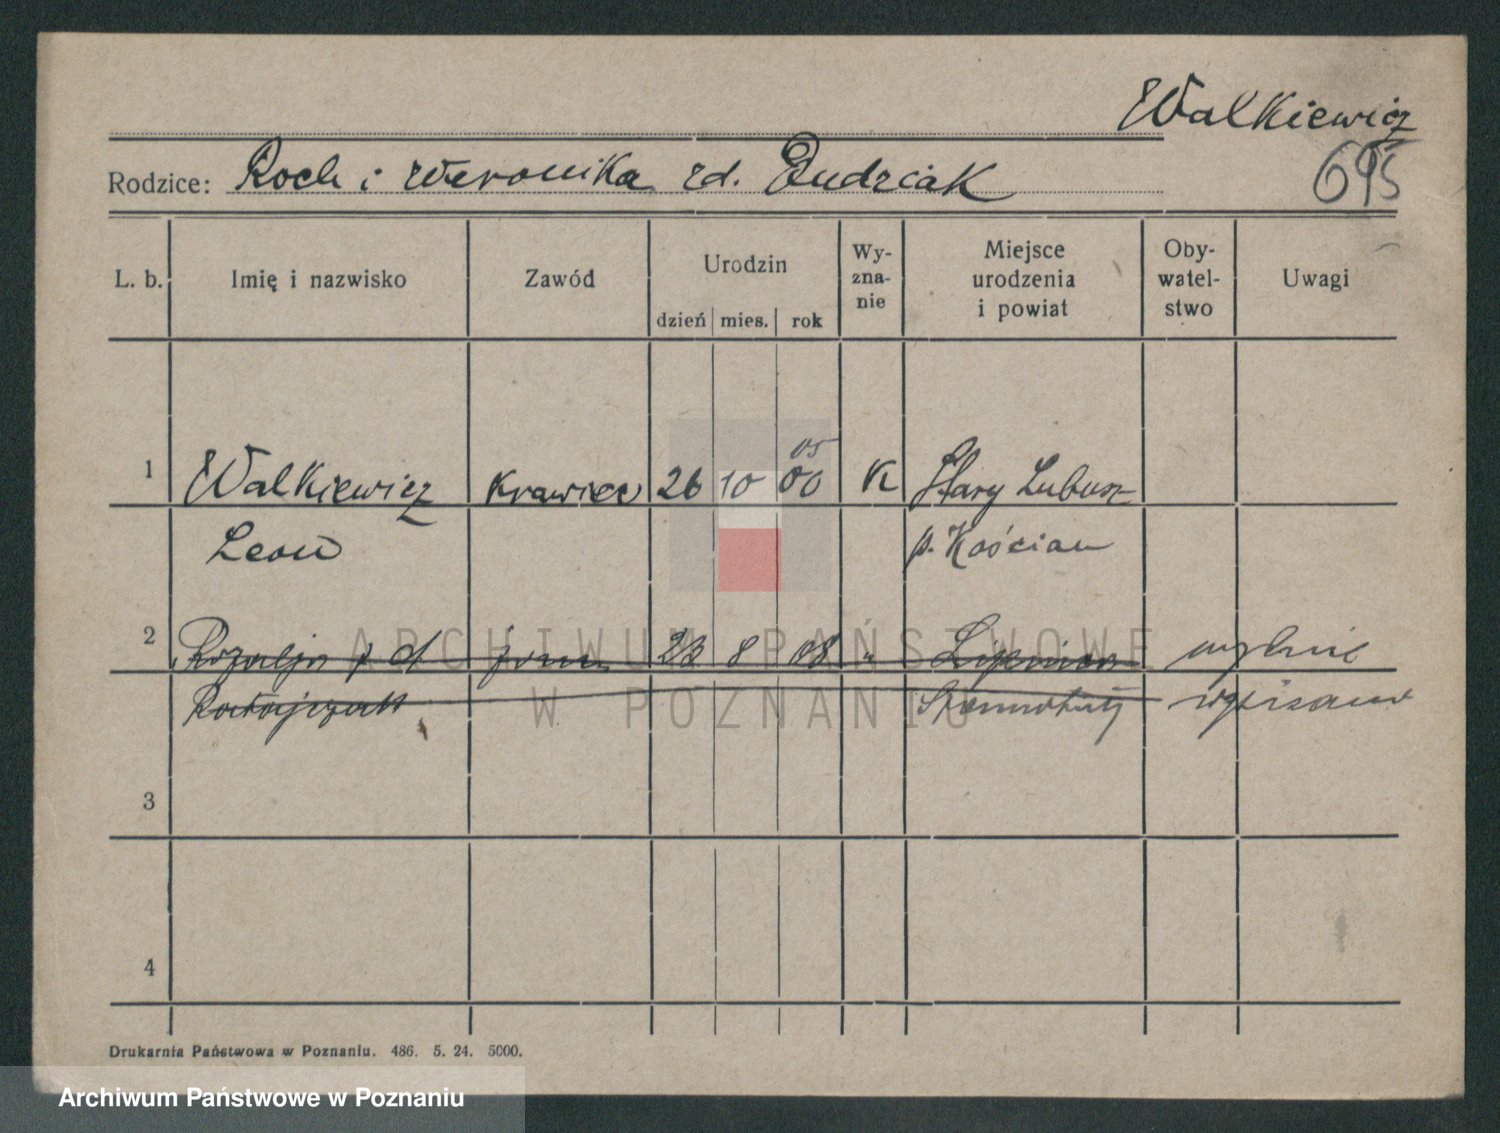 Walkiewicz
695
Rodzice: Roch i Weronika zd. Dudziak
L. b. Imię i nazwisko Zawód Urodzin Wyznanie Miejsce urodzenia i powiat Obywatelstwo Uwagi
dzień mies. rok
05
1 Walkiewicz krawiec 26 10 00 K Stary Lubosz
Leon p. Kościan
2 Rozalja z d. 23 8 08 " mylnie
Ratajczak wpisano
3
4
ARCHIWUM PAŃSTWOWE
W POZNANIU
Drukarnia Państwowa w Poznaniu. 486. 5. 24. 5000.
Archiwum Państwowe w Poznaniu